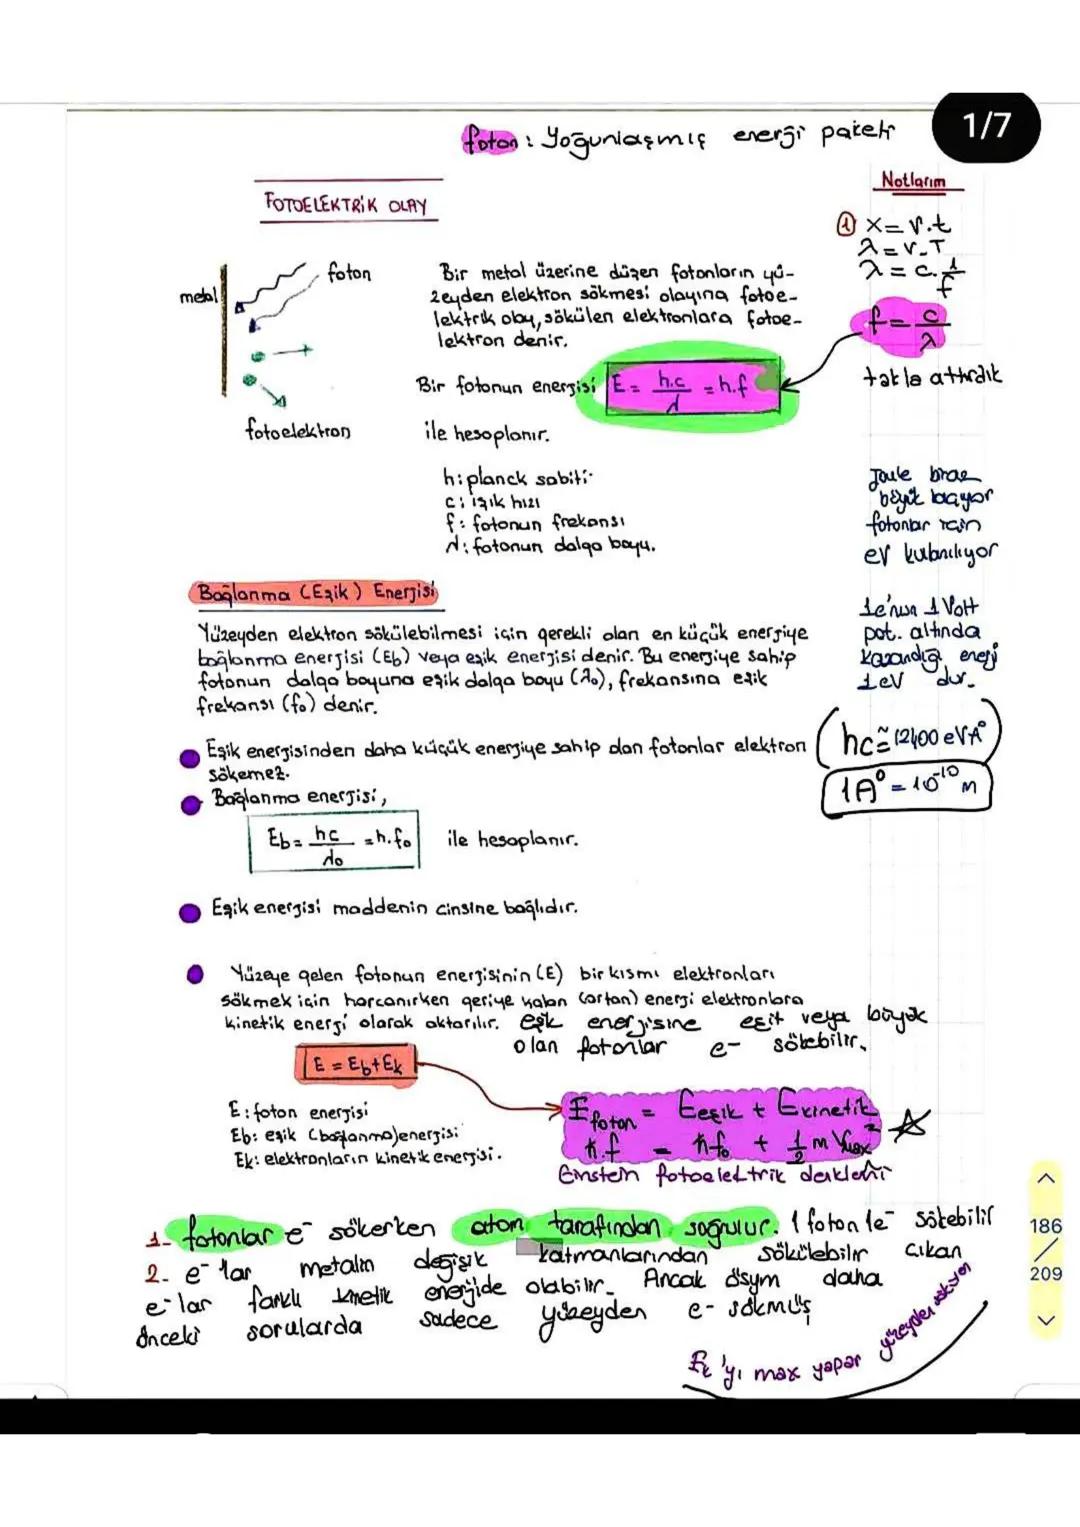 1/7
foton : Yoğunlaşmış enerji paketi
Notlarım
FOTOELEKTRİK OLAY
① x = v.t
λ = v.T
λ = c.1/f
f = c/λ
takla attırdık
metal
foton
fotoelektron
Bir metal üzerine düşen fotonların yü-
zeyden elektron sökmesi olayına fotoe-
lektrik olay, sökülen elektronlara fotoe-
lektron denir.
Bir fotonun energisi E = h.c/λ = h.f
ile hesaplanır.
h: planck sabiti
c: ışık hızı
f: fotonun frekansı
λ: fotonun dalga boyu.
Joule biraz
büyük
fotonlar için
eV kullanılıyor
1e'nun 1 Volt
pot. altında
kazandığı enerji
1eV dur.
hc ≅ 12400 eVA°
1A° = 10^-10 m
Bağlanma (Eşik) Enerjisi
Yüzeyden elektron sökülebilmesi için gerekli olan en küçük enerjiye
bağlanma enerjisi (Eb) veya eşik enerjisi denir. Bu enerjiye sahip
fotonun dalga boyuna eşik dalga boyu (λ₀), frekansına eşik
frekansı (f₀) denir.
Eşik enerjisinden daha küçük enerjiye sahip olan fotonlar elektron
sökemez.
Bağlanma enerjisi,
Eb = hc/λ₀ = h.f₀ ile hesaplanır.
Eşik enerjisi maddenin cinsine bağlıdır.
Yüzeye gelen fotonun enerjisinin (E) bir kısmı elektronları
sökmek için harcanırken geriye kalan (artan) enerji elektronlara
kinetik enerji olarak aktarılır. eşik enerjisine eşit veya büyük
olan fotonlar e- sökebilir.
E = Eb + Ek
E: foton enerjisi
Eb: eşik (bağlanma) enerjisi
Ek: elektronların kinetik enerjisi.
Efoton = Eeşik + Ekinetik
h.f = hf₀ + 1/2 m Vmax²
Einstein fotoelektrik denklemi
1- fotonlar e⁻ sökerken atom tarafından soğrulur. 1 foton 1e⁻ sökebilir
2- e⁻ lar metalin değişik katmanlarından sökülebilir çıkan
e⁻ lar farklı kinetik enerjide olabilir. Ancak ösym daha
önceki sorularda sadece yüzeyden e- sökmüş
Ek'yı max yapar yüzeyden
186
209